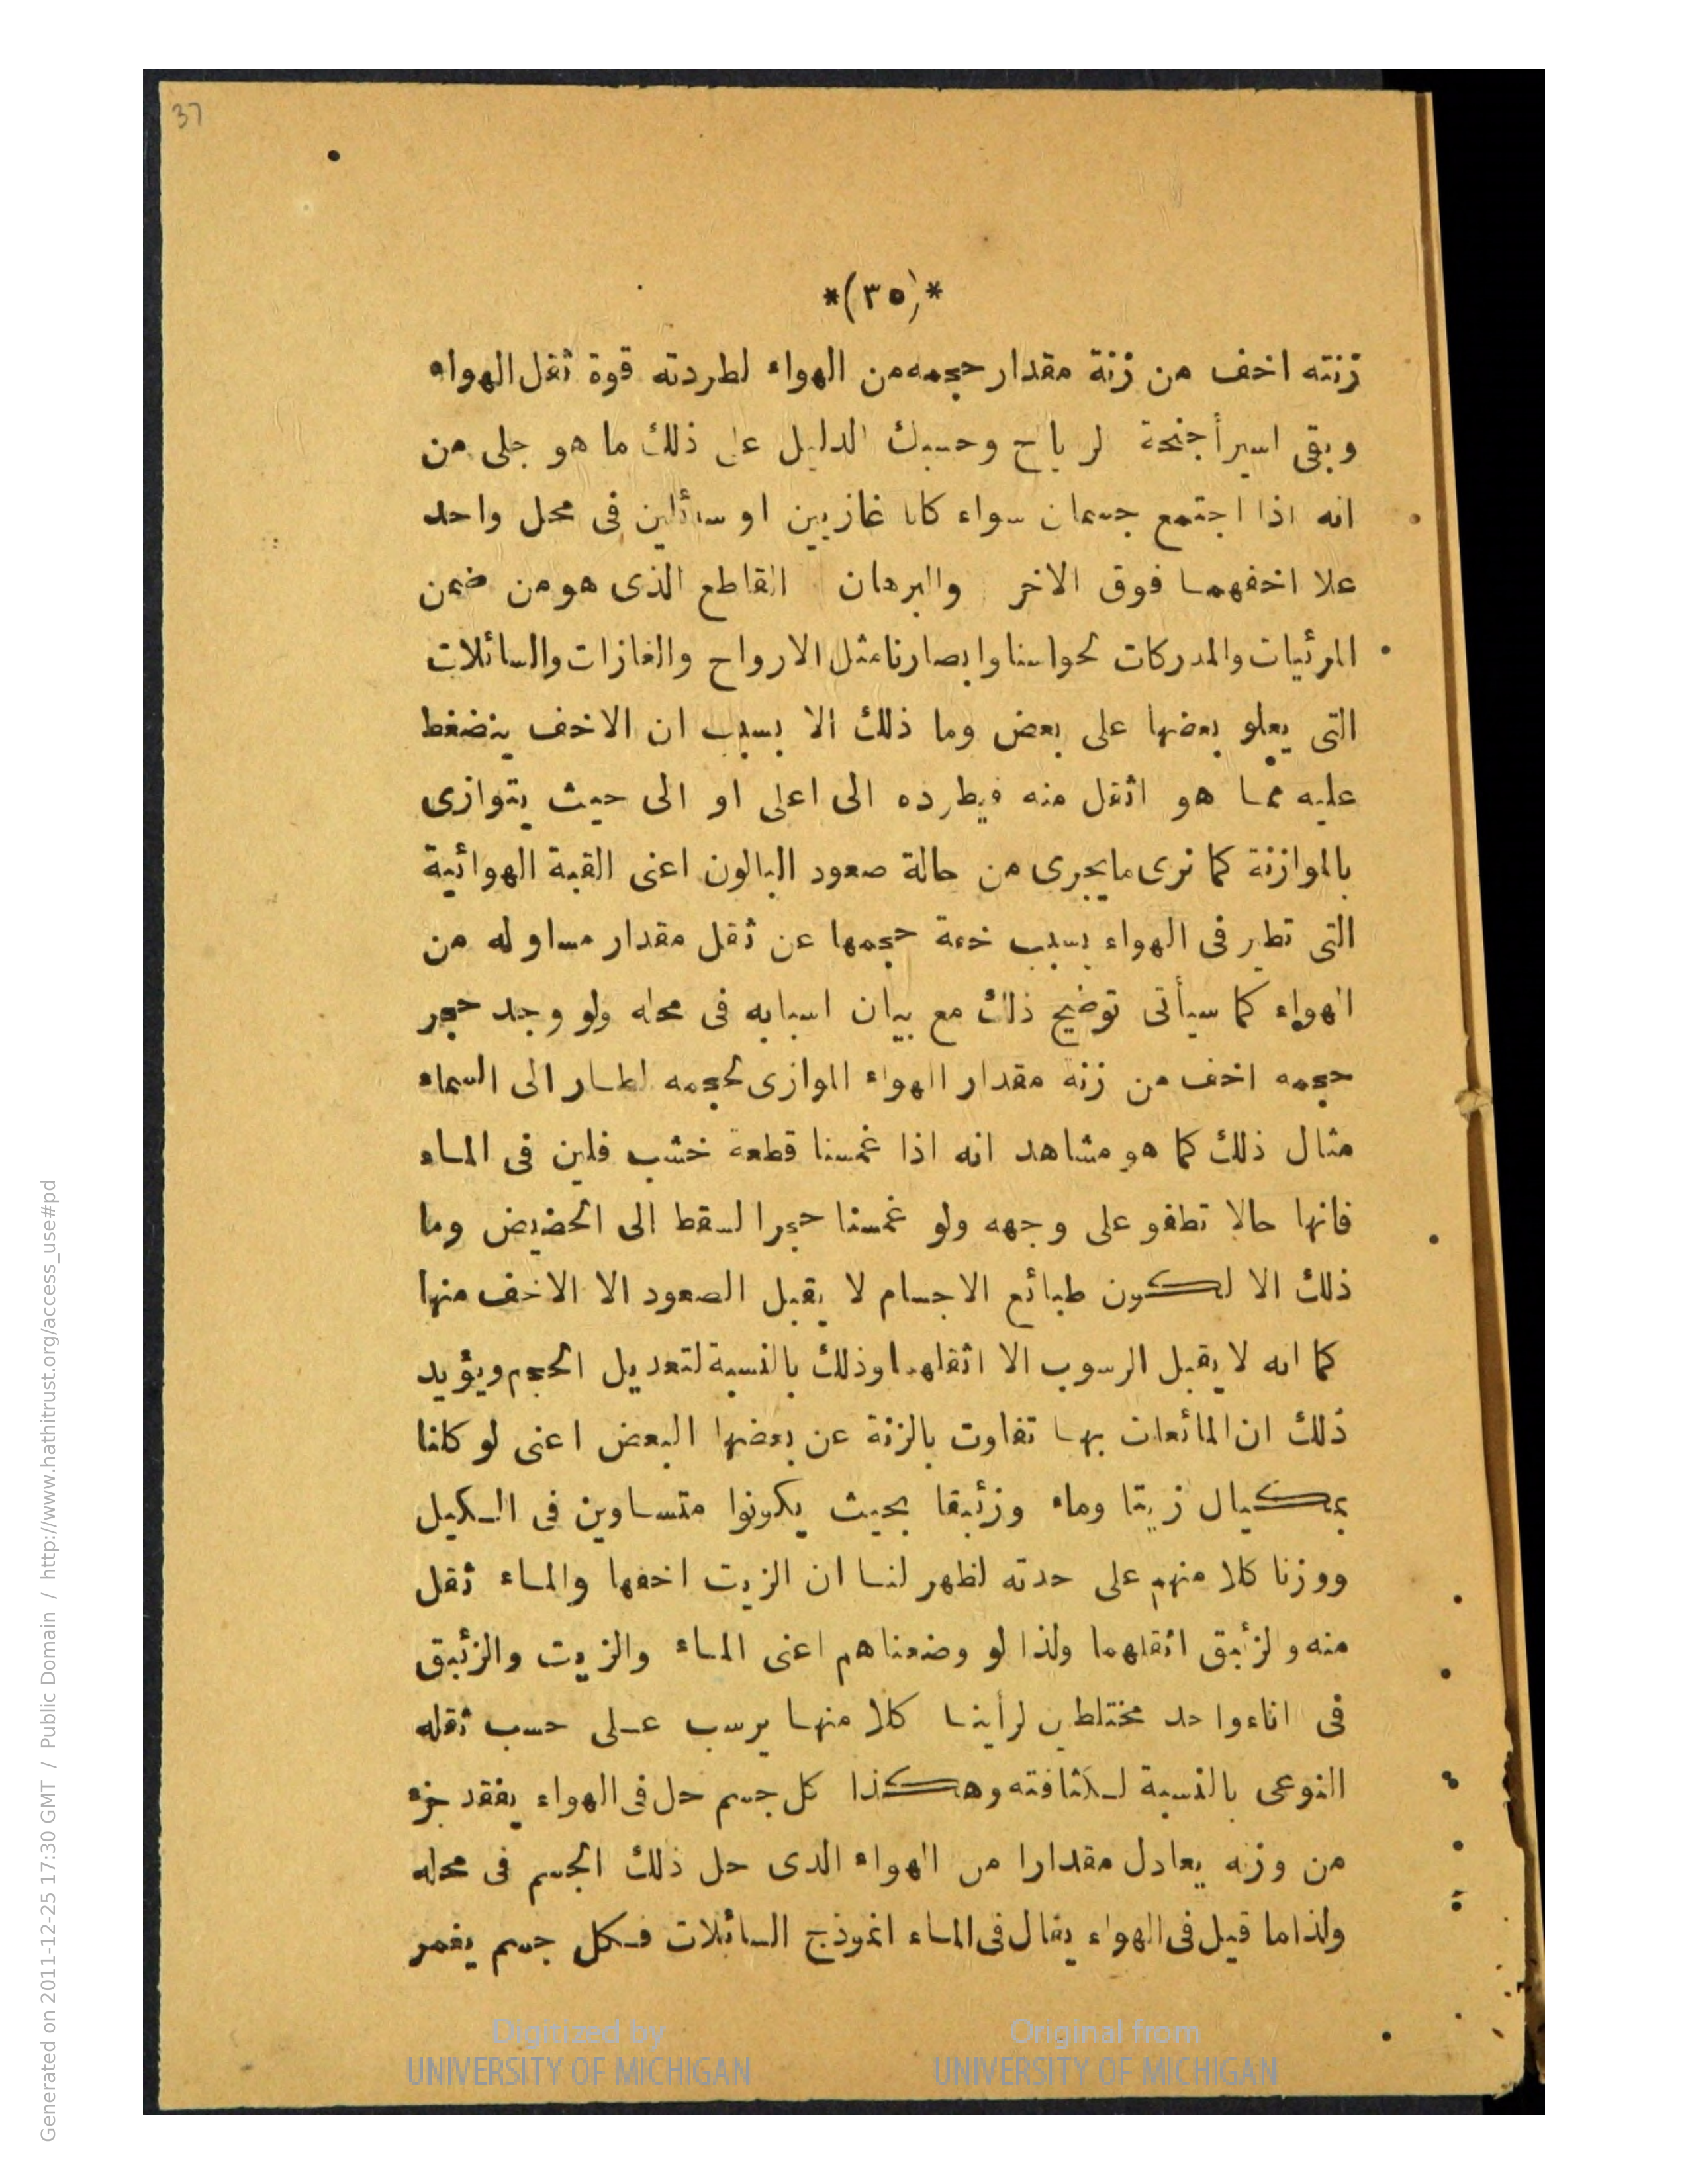 37
*(٣٥)*
زنته اخف من زنة مقدار حجمه من الهواء لطردته قوة ثقل الهواء
وبقى اسير أجنحة لرياح وحسبك الدليل على ذلك ما هو جلى من
انه اذا اجتمع جسمان سواء كانا غازيين او سائلين فى محل واحد
علا اخفهما فوق الاخر والبرهان القاطع الذى هو من ضمن
المرئيات والمدركات لحواسنا وابصارنا مثل الارواح والغازات والسائلات
التى يعلو بعضها على بعض وما ذلك الا بسبب ان الاخف ينضغط
عليه مما هو اثقل منه فيطرده الى اعلى او الى حيث يتوازى
بالموازنة كما نرى ما يجرى من حالة صعود البالون اعنى القبة الهوائية
التى تطير فى الهواء بسبب خفة حجمها عن ثقل مقدار مساو له من
الهواء كما سيأتى توضيح ذلك مع بيان اسبابه فى محله ولو وجد حجر
حجمه اخف من زنة مقدار الهواء الموازى لحجمه لطار الى السماء
مثال ذلك كما هو مشاهد انه اذا غمسنا قطعة خشب فلين فى الماء
فانها حالا تطفو على وجهه ولو غمسنا حجرا لسقط الى الحضيض وما
ذلك الا لكون طبائع الاجسام لا يقبل الصعود الا الاخف منها
كما انه لا يقبل الرسوب الا اثقلها وذلك بالنسبة لتعديل الحجم ويؤيد
ذلك ان المائعات بها تفاوت بالزنة عن بعضها البعض اعنى لو كلنا
بمكيال زيتا وماء وزئبقا بحيث يكونوا متساوين فى الكيل
ووزنا كلا منهم على حدته لظهر لنا ان الزيت اخفها والماء ثقل
منه ولزئبق اثقلهما ولذا لو وضعناهم اعنى الماء والزيت والزئبق
فى اناء واحد مختلطين لرأينا كلا منها يرسب على حسب ثقله
النوعى بالنسبة لكثافته وهكذا كل جسم حل فى الهواء يفقد جزء
من وزنه يعادل مقدارا من الهواء الذى حل ذلك الجسم فى محله
ولذا ما قيل فى الهواء يقال فى الماء انموذج السائلات فكل جسم يغمر
Digitized by
UNIVERSITY OF MICHIGAN
Original from
UNIVERSITY OF MICHIGAN
Generated on 2011-12-25 17:30 GMT / Public Domain / http://www.hathitrust.org/access_use#pd